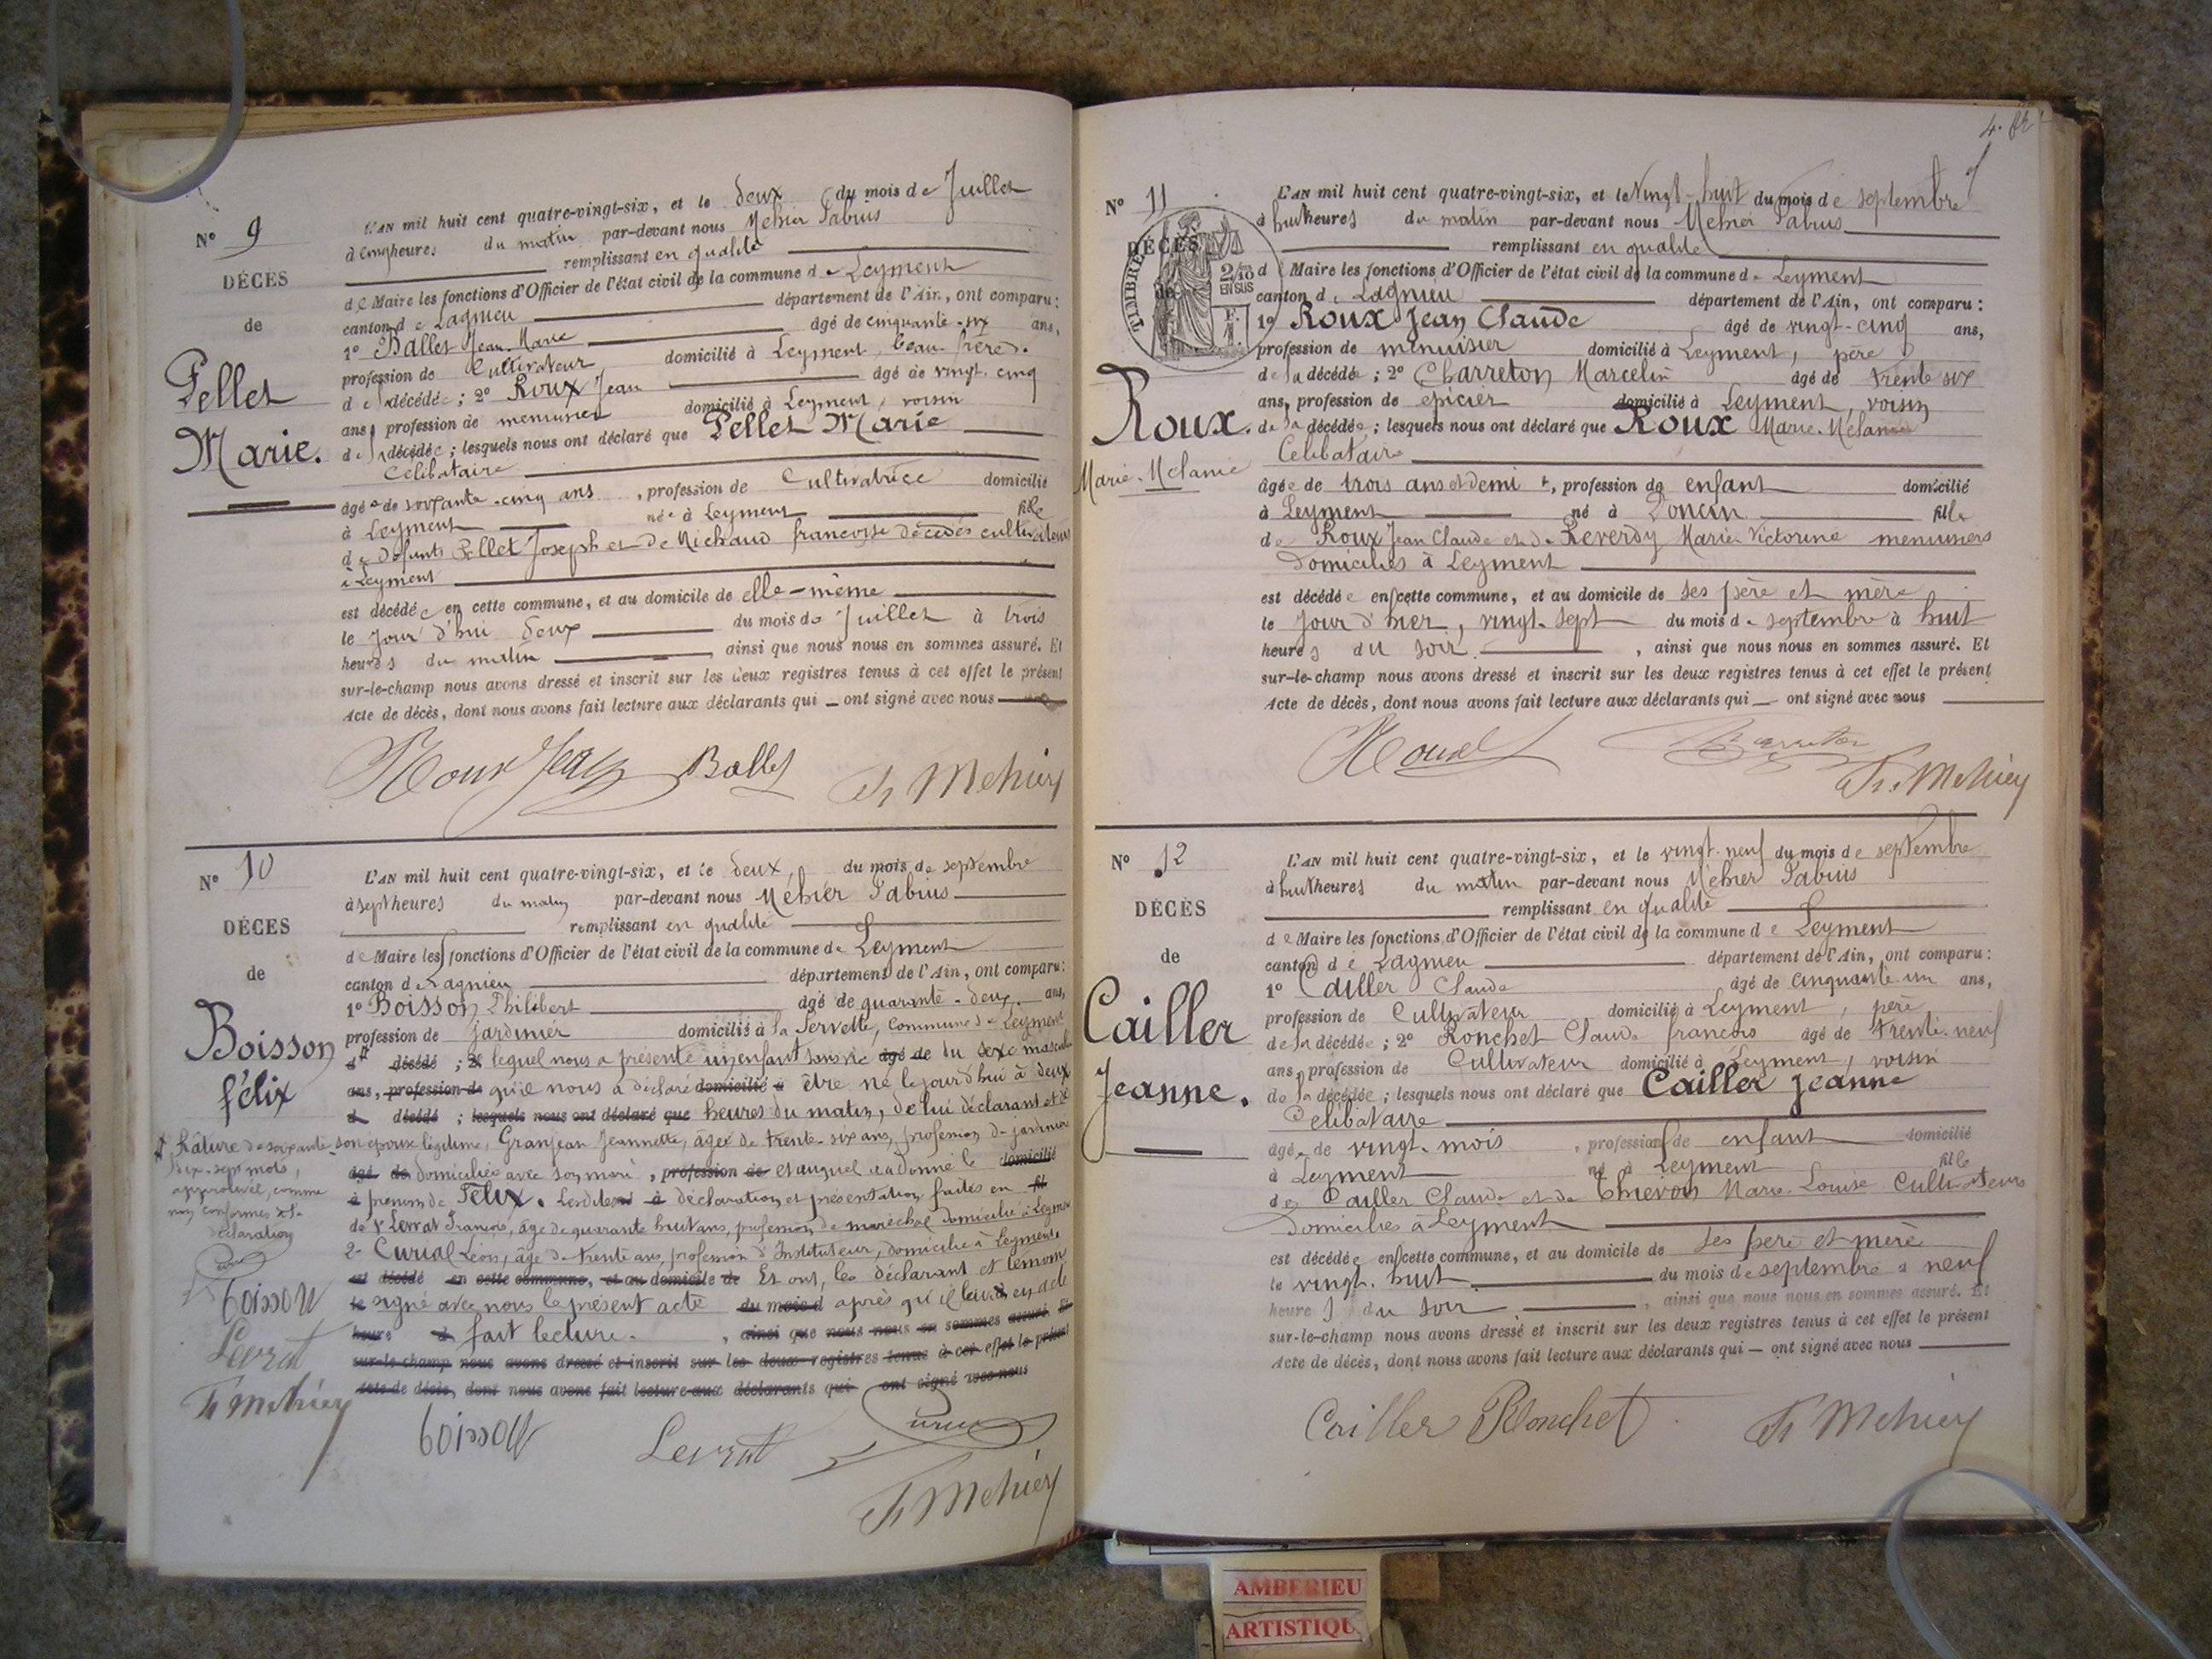 Nº 9
DÉCES
de
Pellet
Marie.
L'AN mil huit cent quatre-vingt-six, et le deux du mois de Juillet
à cinq heures du matin par-devant nous Mehier Fabius
remplissant en qualité
de Maire les fonctions d'Officier de l'état civil de la commune de Leyment
canton de Lagnieu département de l'Ain, ont comparu:
1º Ballet Jean-Marie âgé de cinquante-six ans,
profession de Cultivateur domicilié à Leyment, beau-frère
de la décédée; 2º Roux Jean âgé de vingt-cinq
ans, profession de menuisier domicilié à Leyment, voisin
de la décédée; lesquels nous ont déclaré que Pellet Marie
Celibataire
âgée de soixante-cinq ans, profession de Cultivatrice domicilié
à Leyment née à Leyment fille
de défunts Pellet Joseph et de Michaud françoise décédés cultivateurs
à Leyment
est décédée en cette commune, et au domicile de elle-même
le jour d'hui deux du mois de Juillet à trois
heures du matin, ainsi que nous nous en sommes assuré. Et
sur-le-champ nous avons dressé et inscrit sur les deux registres tenus à cet effet le présent
Acte de décès, dont nous avons fait lecture aux déclarants qui ont signé avec nous
Roux Jean Ballet Fs Mehier
Nº 10
DÉCES
de
Boisson
félix
L'AN mil huit cent quatre-vingt-six, et le deux, du mois de septembre
à sept heures du matin par-devant nous Méhier Fabius
remplissant en qualité
de Maire les fonctions d'Officier de l'état civil de la commune de Leyment
canton de Lagnieu département de l'Ain, ont comparu:
1º Boisson Philibert âgé de quarante-deux ans,
profession de jardinier domicilié à la Servette, commune de Leyment
d décédé; 2º lequel nous a présenté un enfant sans vie âgé de du sexe masculin
ans, profession de qu'il nous a déclaré domicilié à être né le jourd'hui à deux
d décédé; lesquels nous ont déclaré que heures du matin, de lui déclarant et de
son épouse légitime, Granjean Jeannette, âgée de trente-six ans, profession de jardinier
âgé de domiciliée avec son mari, profession de et auquel il a donné le domicilié
à prénom de Félix. Lesdites à déclaration et présentation faites en fil
de 1º Levrat François, âgé de quarante huit ans, profession de maréchal domicilié à Leyment
2º Curial Léon, âgé de trente ans, profession d'Instituteur, domicilié à Leyment
est décédé en cette commune, et au domicile de Et ont, les déclarant et témoins
le signé avec nous le présent acte du mois d après qu'il leur en a été
heure d fait lecture. , ainsi que nous nous en sommes assuré. Et
sur-le-champ nous avons dressé et inscrit sur les deux registres tenus à cet effet le présent
Acte de décès, dont nous avons fait lecture aux déclarants qui ont signé avec nous
Râture de soixante
dix-sept mots,
approuvée, comme
non conformes à la
déclaration
Boisson
Levrat
Fs Mehier
Boisson Levrat
Fs Mehier
4.
Nº 11
DÉCES
de
TIMBRE
2/10
EN SUS
Roux.
Marie-Mélanie
L'AN mil huit cent quatre-vingt-six, et le Vingt-huit du mois de septembre
à huit heures du matin par-devant nous Mehier Fabius
remplissant en qualité
de Maire les fonctions d'Officier de l'état civil de la commune de Leyment
canton de Lagnieu département de l'Ain, ont comparu:
1º Roux Jean Claude âgé de vingt-cinq ans,
profession de menuisier domicilié à Leyment, père
de la décédée; 2º Charreton Marcelin âgé de trente six
ans, profession de épicier domicilié à Leyment, voisin
de la décédée; lesquels nous ont déclaré que Roux Marie-Mélanie
Celibataire
âgée de trois ans et demi, profession de enfant domicilié
à Leyment né à Loncin fille
de Roux Jean Claude et de Reverdy Marie Victorine menuisiers
domiciliés à Leyment
est décédée en cette commune, et au domicile de ses père et mère
le jour d'hier, vingt-sept du mois de septembre à huit
heures du soir, ainsi que nous nous en sommes assuré. Et
sur-le-champ nous avons dressé et inscrit sur les deux registres tenus à cet effet le présent
Acte de décès, dont nous avons fait lecture aux déclarants qui ont signé avec nous
Roux Charreton
Fs. Mehier
Nº 12
DÉCÈS
de
Cailler
Jeanne.
L'AN mil huit cent quatre-vingt-six, et le vingt-neuf du mois de septembre
à huit heures du matin par-devant nous Mehier Fabius
remplissant en qualité
de Maire les fonctions d'Officier de l'état civil de la commune de Leyment
canton de Lagnieu département de l'Ain, ont comparu:
1º Cailler Claude âgé de Cinquante-un ans,
profession de Cultivateur domicilié à Leyment, père
de la décédée; 2º Ronchet Claude françois âgé de trente-neuf
ans, profession de Cultivateur domicilié à Leyment, voisin
de la décédée; lesquels nous ont déclaré que Cailler Jeanne
Celibataire
âgée de vingt-mois, profession de enfant domicilié
à Leyment né à Leyment fille
de Cailler Claude et de Thievon Marie Louise Cultivateurs
domiciliés à Leyment
est décédée en cette commune, et au domicile de ses père et mère
le vingt-huit du mois de septembre à neuf
heures du soir, ainsi que nous nous en sommes assuré. Et
sur-le-champ nous avons dressé et inscrit sur les deux registres tenus à cet effet le présent
Acte de décès, dont nous avons fait lecture aux déclarants qui — ont signé avec nous
Cailler Ronchet Fs Mehier
AMBERIEU
ARTISTIQU